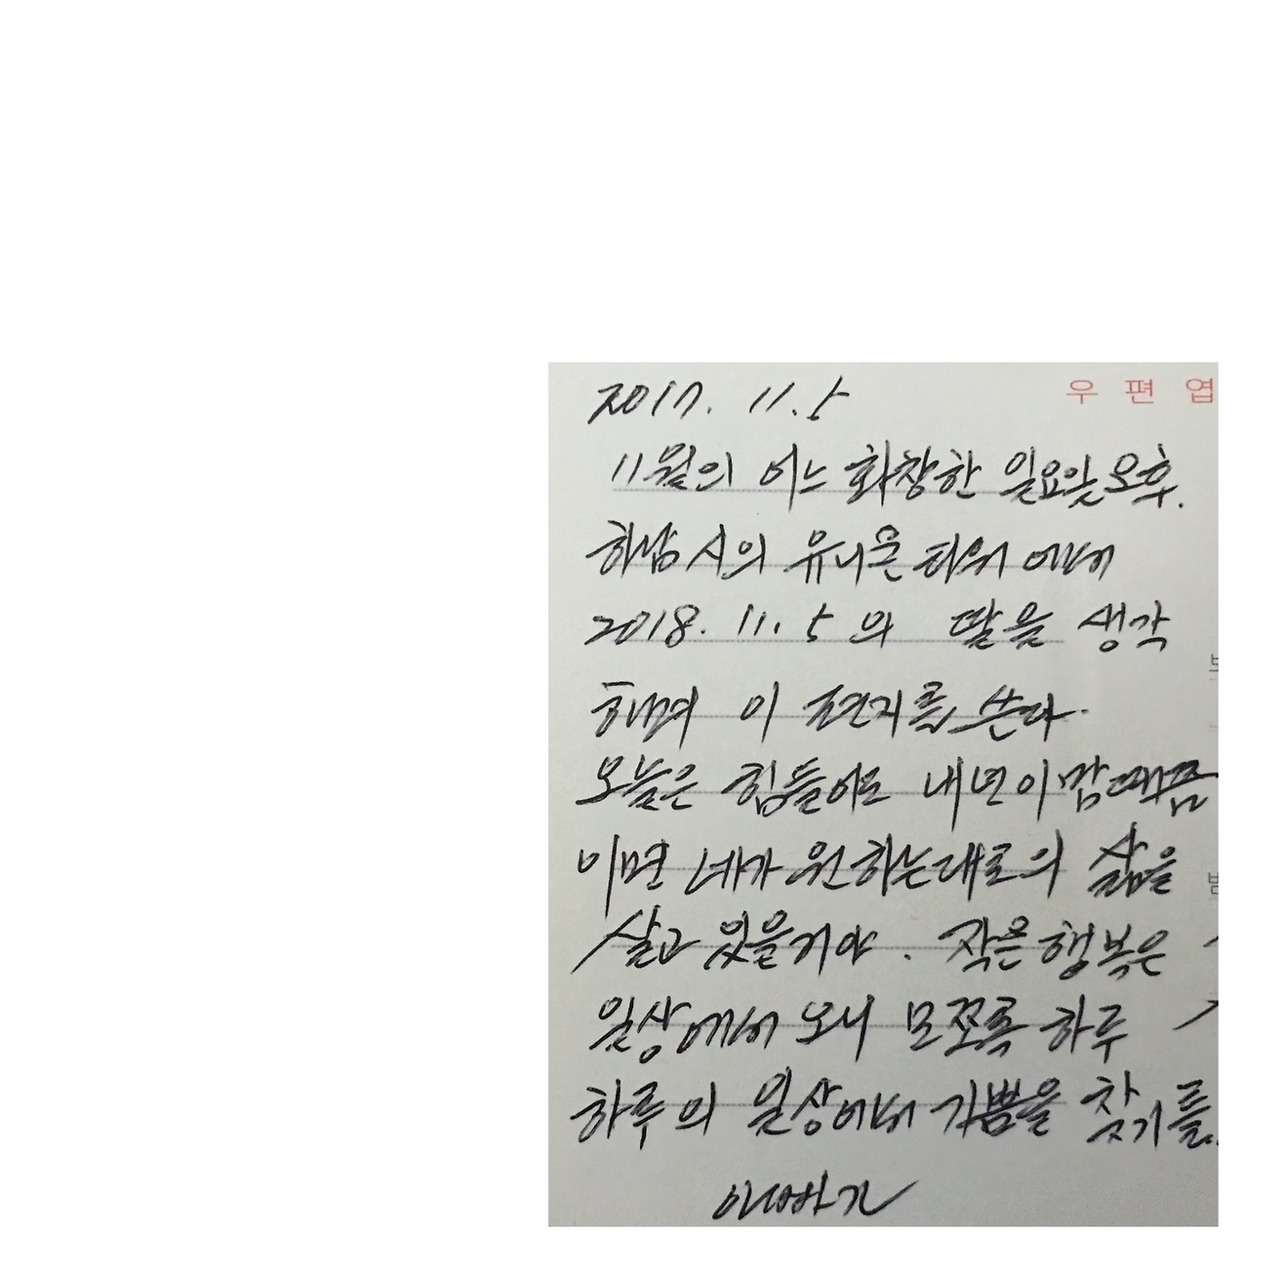 2017. 11. 5
우 편 엽
11월의 어느 화창한 일요일 오후.
하남시의 유니온 타워에서
2018. 11. 5 의 딸을 생각
하며 이 편지를 쓴다.
오늘은 힘들어도 내년 이맘때쯤
이면 네가 원하는대로의 삶을
살고 있을거야. 작은 행복은
일상에서 오니 모쪼록 하루
하루의 일상에서 기쁨을 찾기를.
아빠가